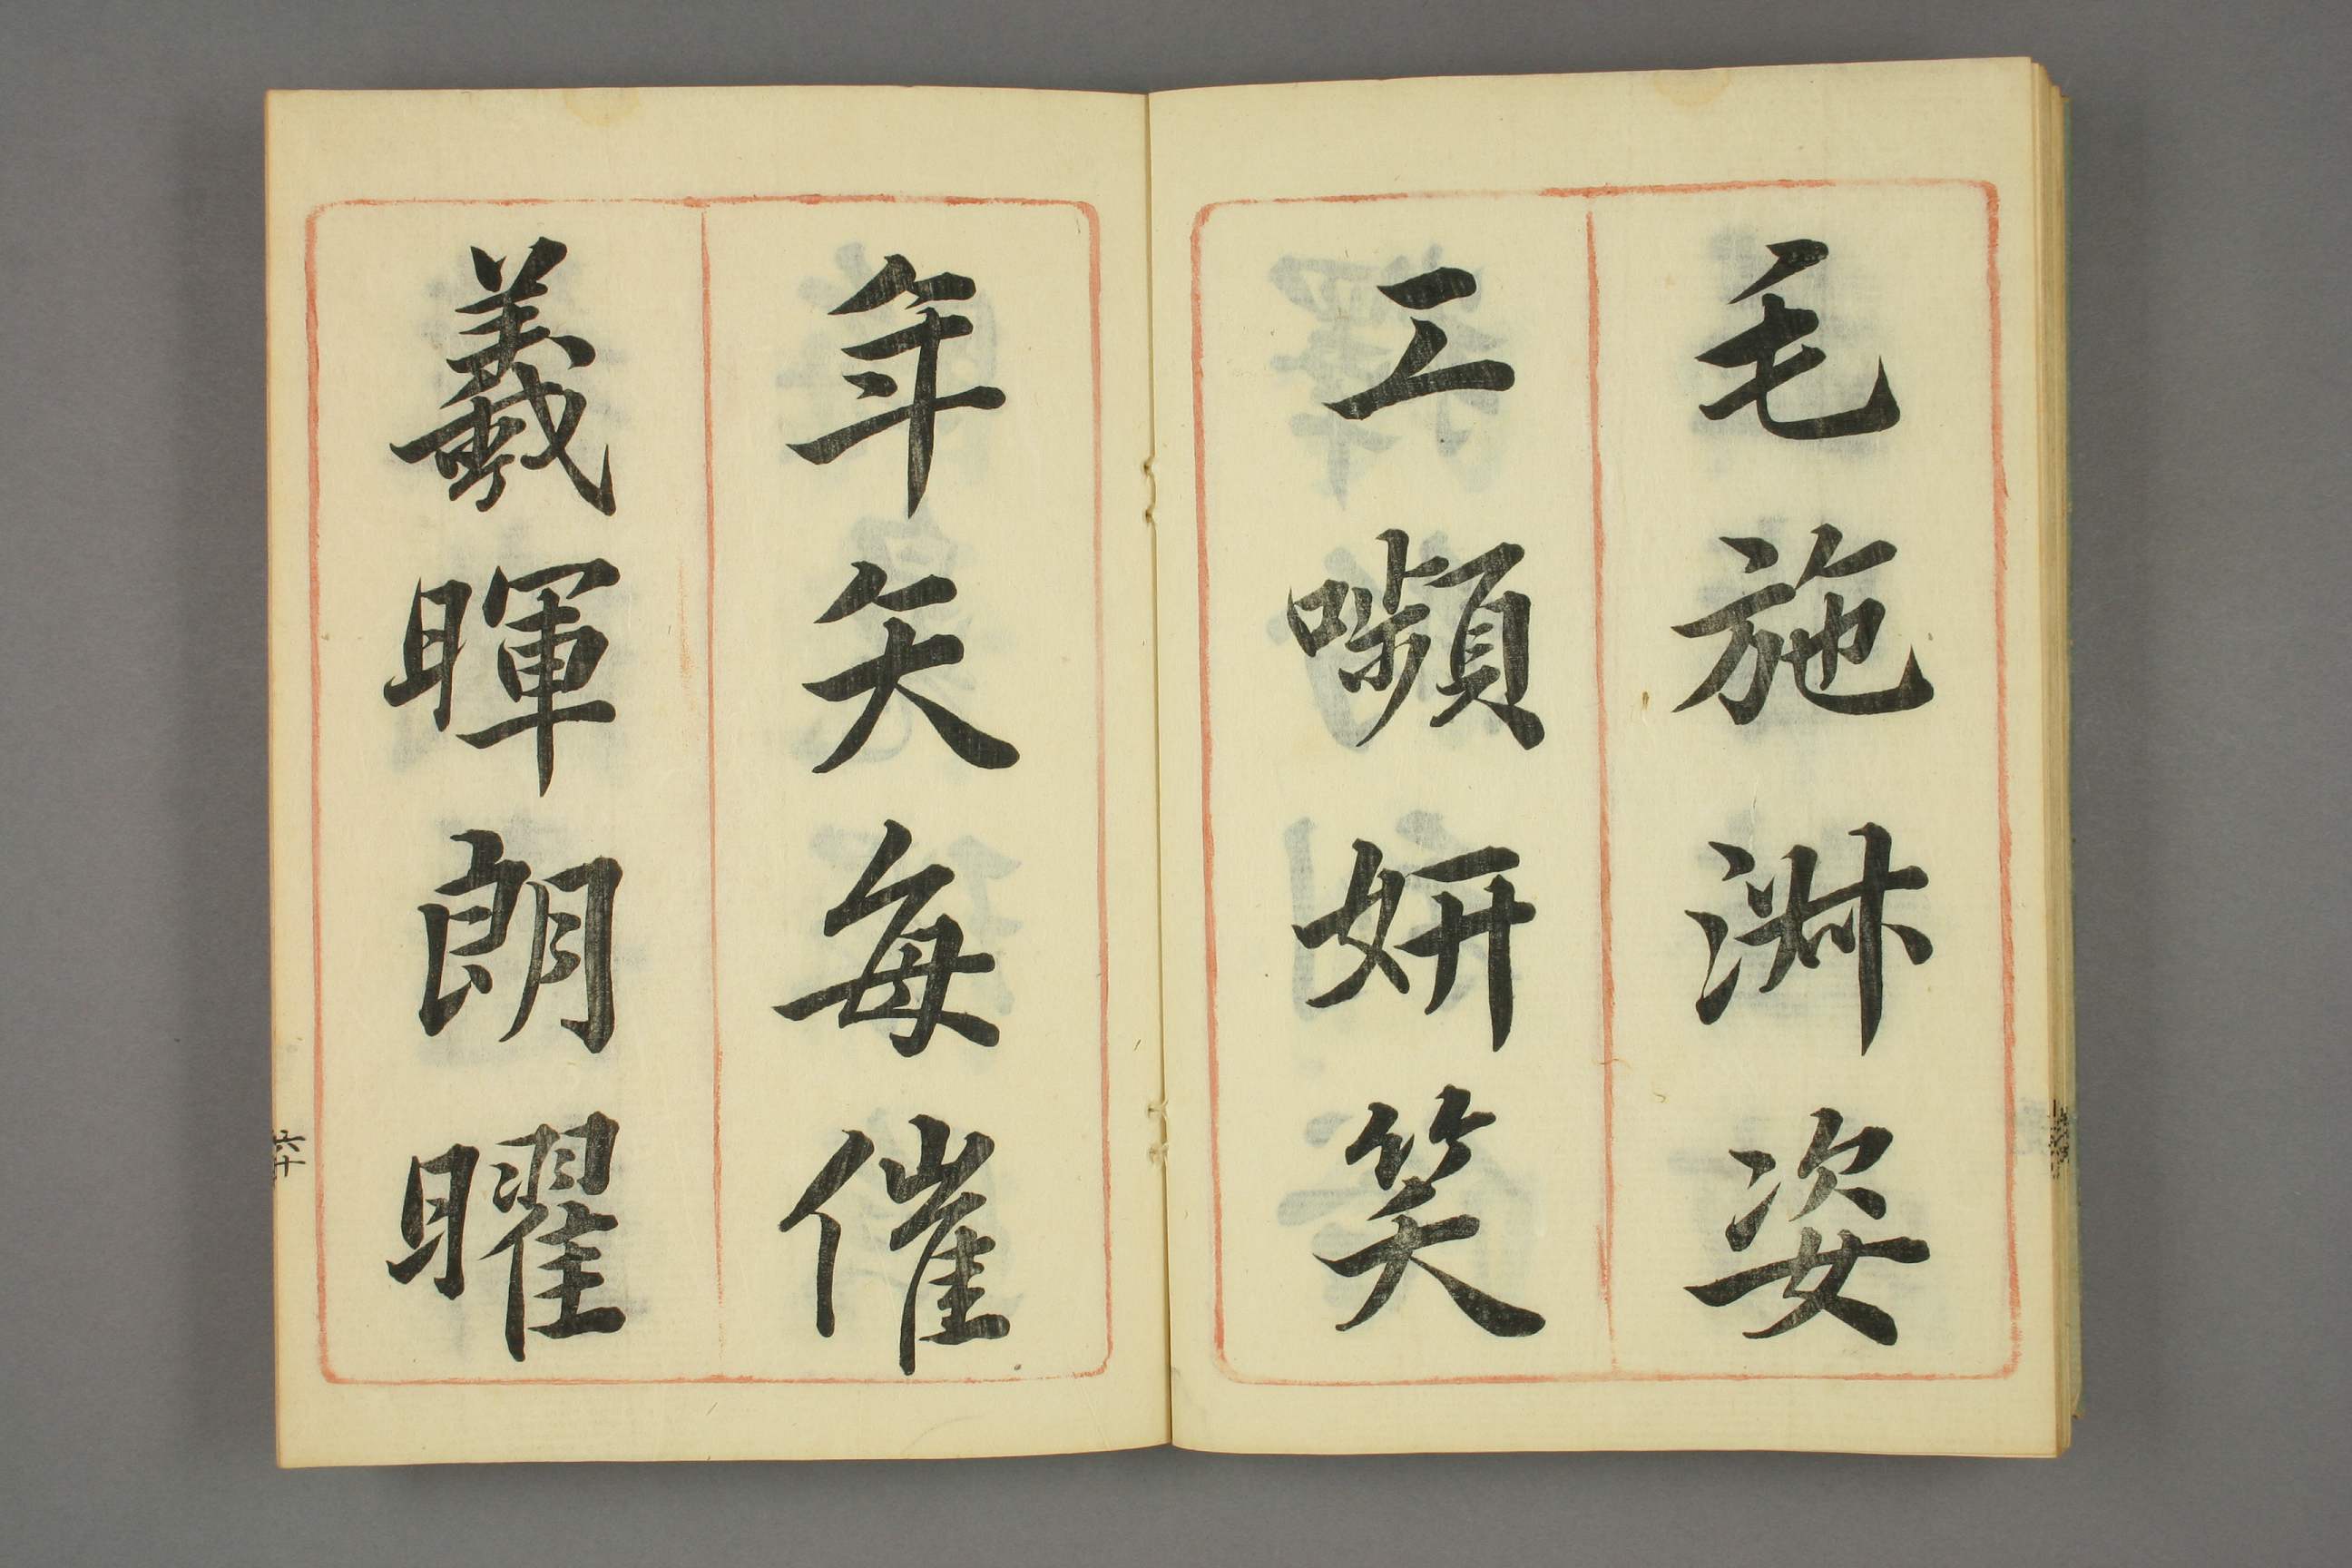 毛施淑姿
工嚬妍笑
年矢每催
羲暉朗曜
六十